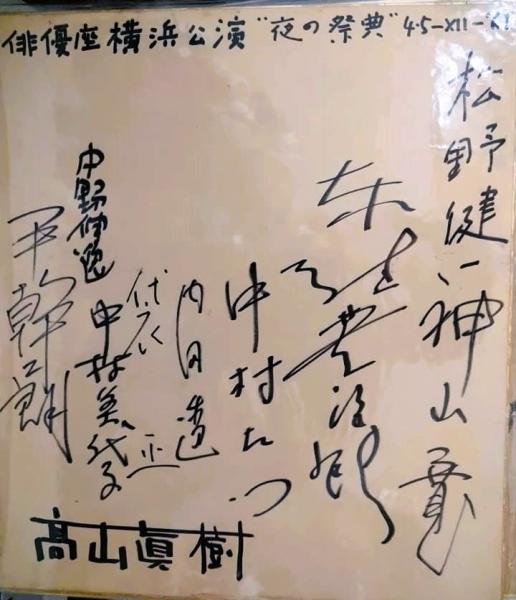 俳優座横浜公演 "夜の祭典" 4・5-XII-61
松野健一
神山寛
東野英治郎
中村たつ
内田透
中村美代子
中野伸逸
平幹二朗
高山眞樹